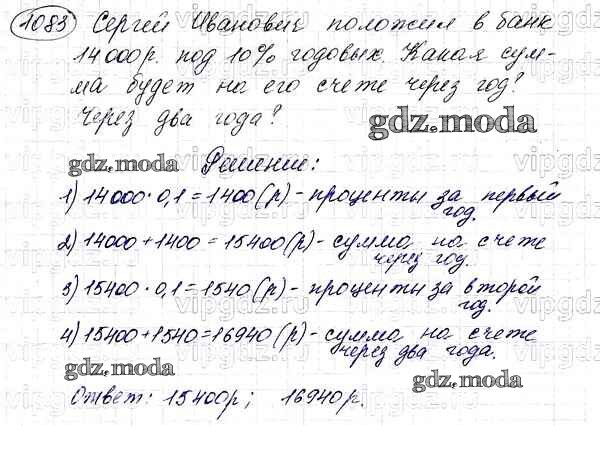 1083 Сергей Иванович положил в банк
14000р. под 10% годовых. Какая сум-
ма будет на его счете через год?
Через два года?
gdz.moda
gdz.moda
Решение:
1) 14000 · 0,1 = 1400 (р) - проценты за первый
год.
2) 14000 + 1400 = 15400 (р) - сумма на счете
через год.
3) 15400 · 0,1 = 1540 (р) - проценты за второй
год.
4) 15400 + 1540 = 16940 (р) - сумма на счете
через два года.
gdz.moda
gdz.moda
Ответ: 15400р; 16940р.